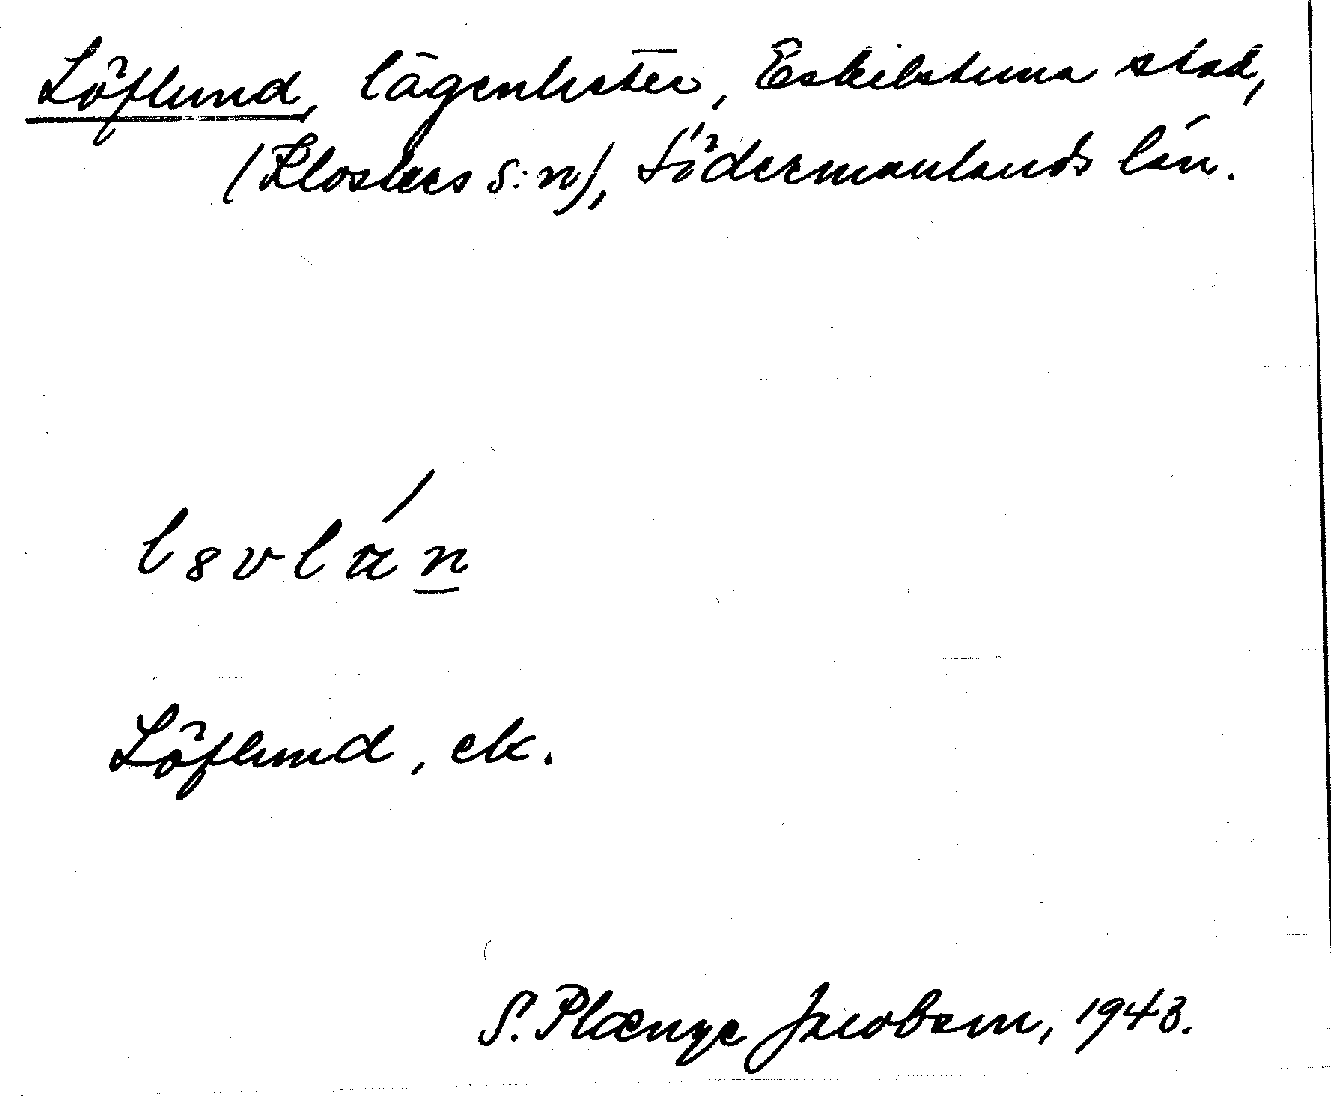 Löflund, lägenheter, Eskilstuna stad,
(Klosters s:n), Södermanlands län.
Löflund, ek.
S. Plænge Jacobson, 1943.